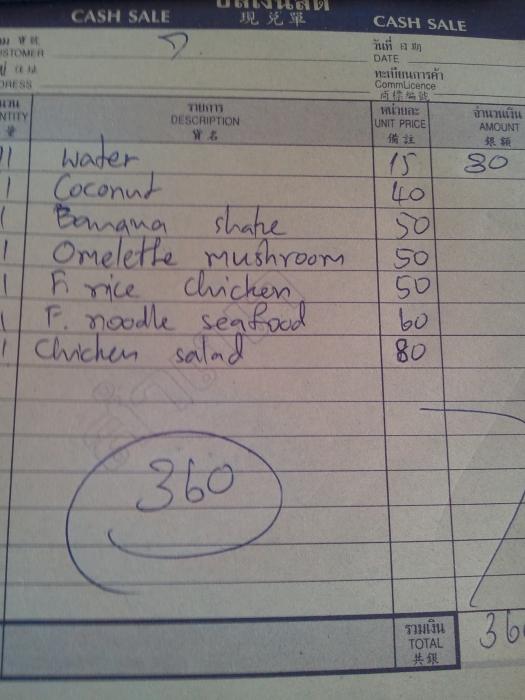 CASH SALE บิลเงินสด CASH SALE
現兑單
วันที่ 日期
DATE
ทะเบียนการค้า
CommLicence
商標編號
รายการ หน่วยละ จำนวนเงิน
DESCRIPTION UNIT PRICE AMOUNT
貨名 備註 銀額
11 Water 15 30
1 Coconut 40
1 Banana shake 50
1 Omelette mushroom 50
1 F. rice chicken 50
1 F. noodle seafood 60
1 Chicken salad 80
360
รวมเงิน
TOTAL 360
共銀